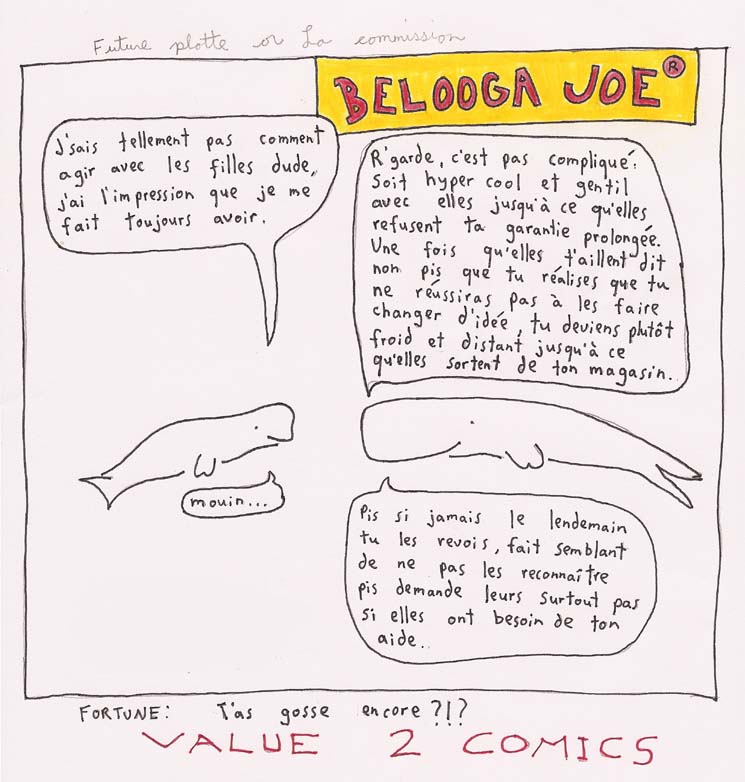 Future plotte or La commission
BELOOGA JOE®
J'sais tellement pas comment
agir avec les filles dude,
j'ai l'impression que je me
fait toujours avoir.
R'garde, c'est pas compliqué.
Soit hyper cool et gentil
avec elles jusqu'à ce qu'elles
refusent ta garantie prolongée.
Une fois qu'elles t'aillent dit
non pis que tu réalises que tu
ne réussiras pas à les faire
changer d'idée, tu deviens plutôt
froid et distant jusqu'à ce
qu'elles sortent de ton magasin.
mouin...
Pis si jamais le lendemain
tu les revois, fait semblant
de ne pas les reconnaître
pis demande leurs surtout pas
si elles ont besoin de ton
aide..
FORTUNE: T'as gosse encore?!?
VALUE 2 COMICS